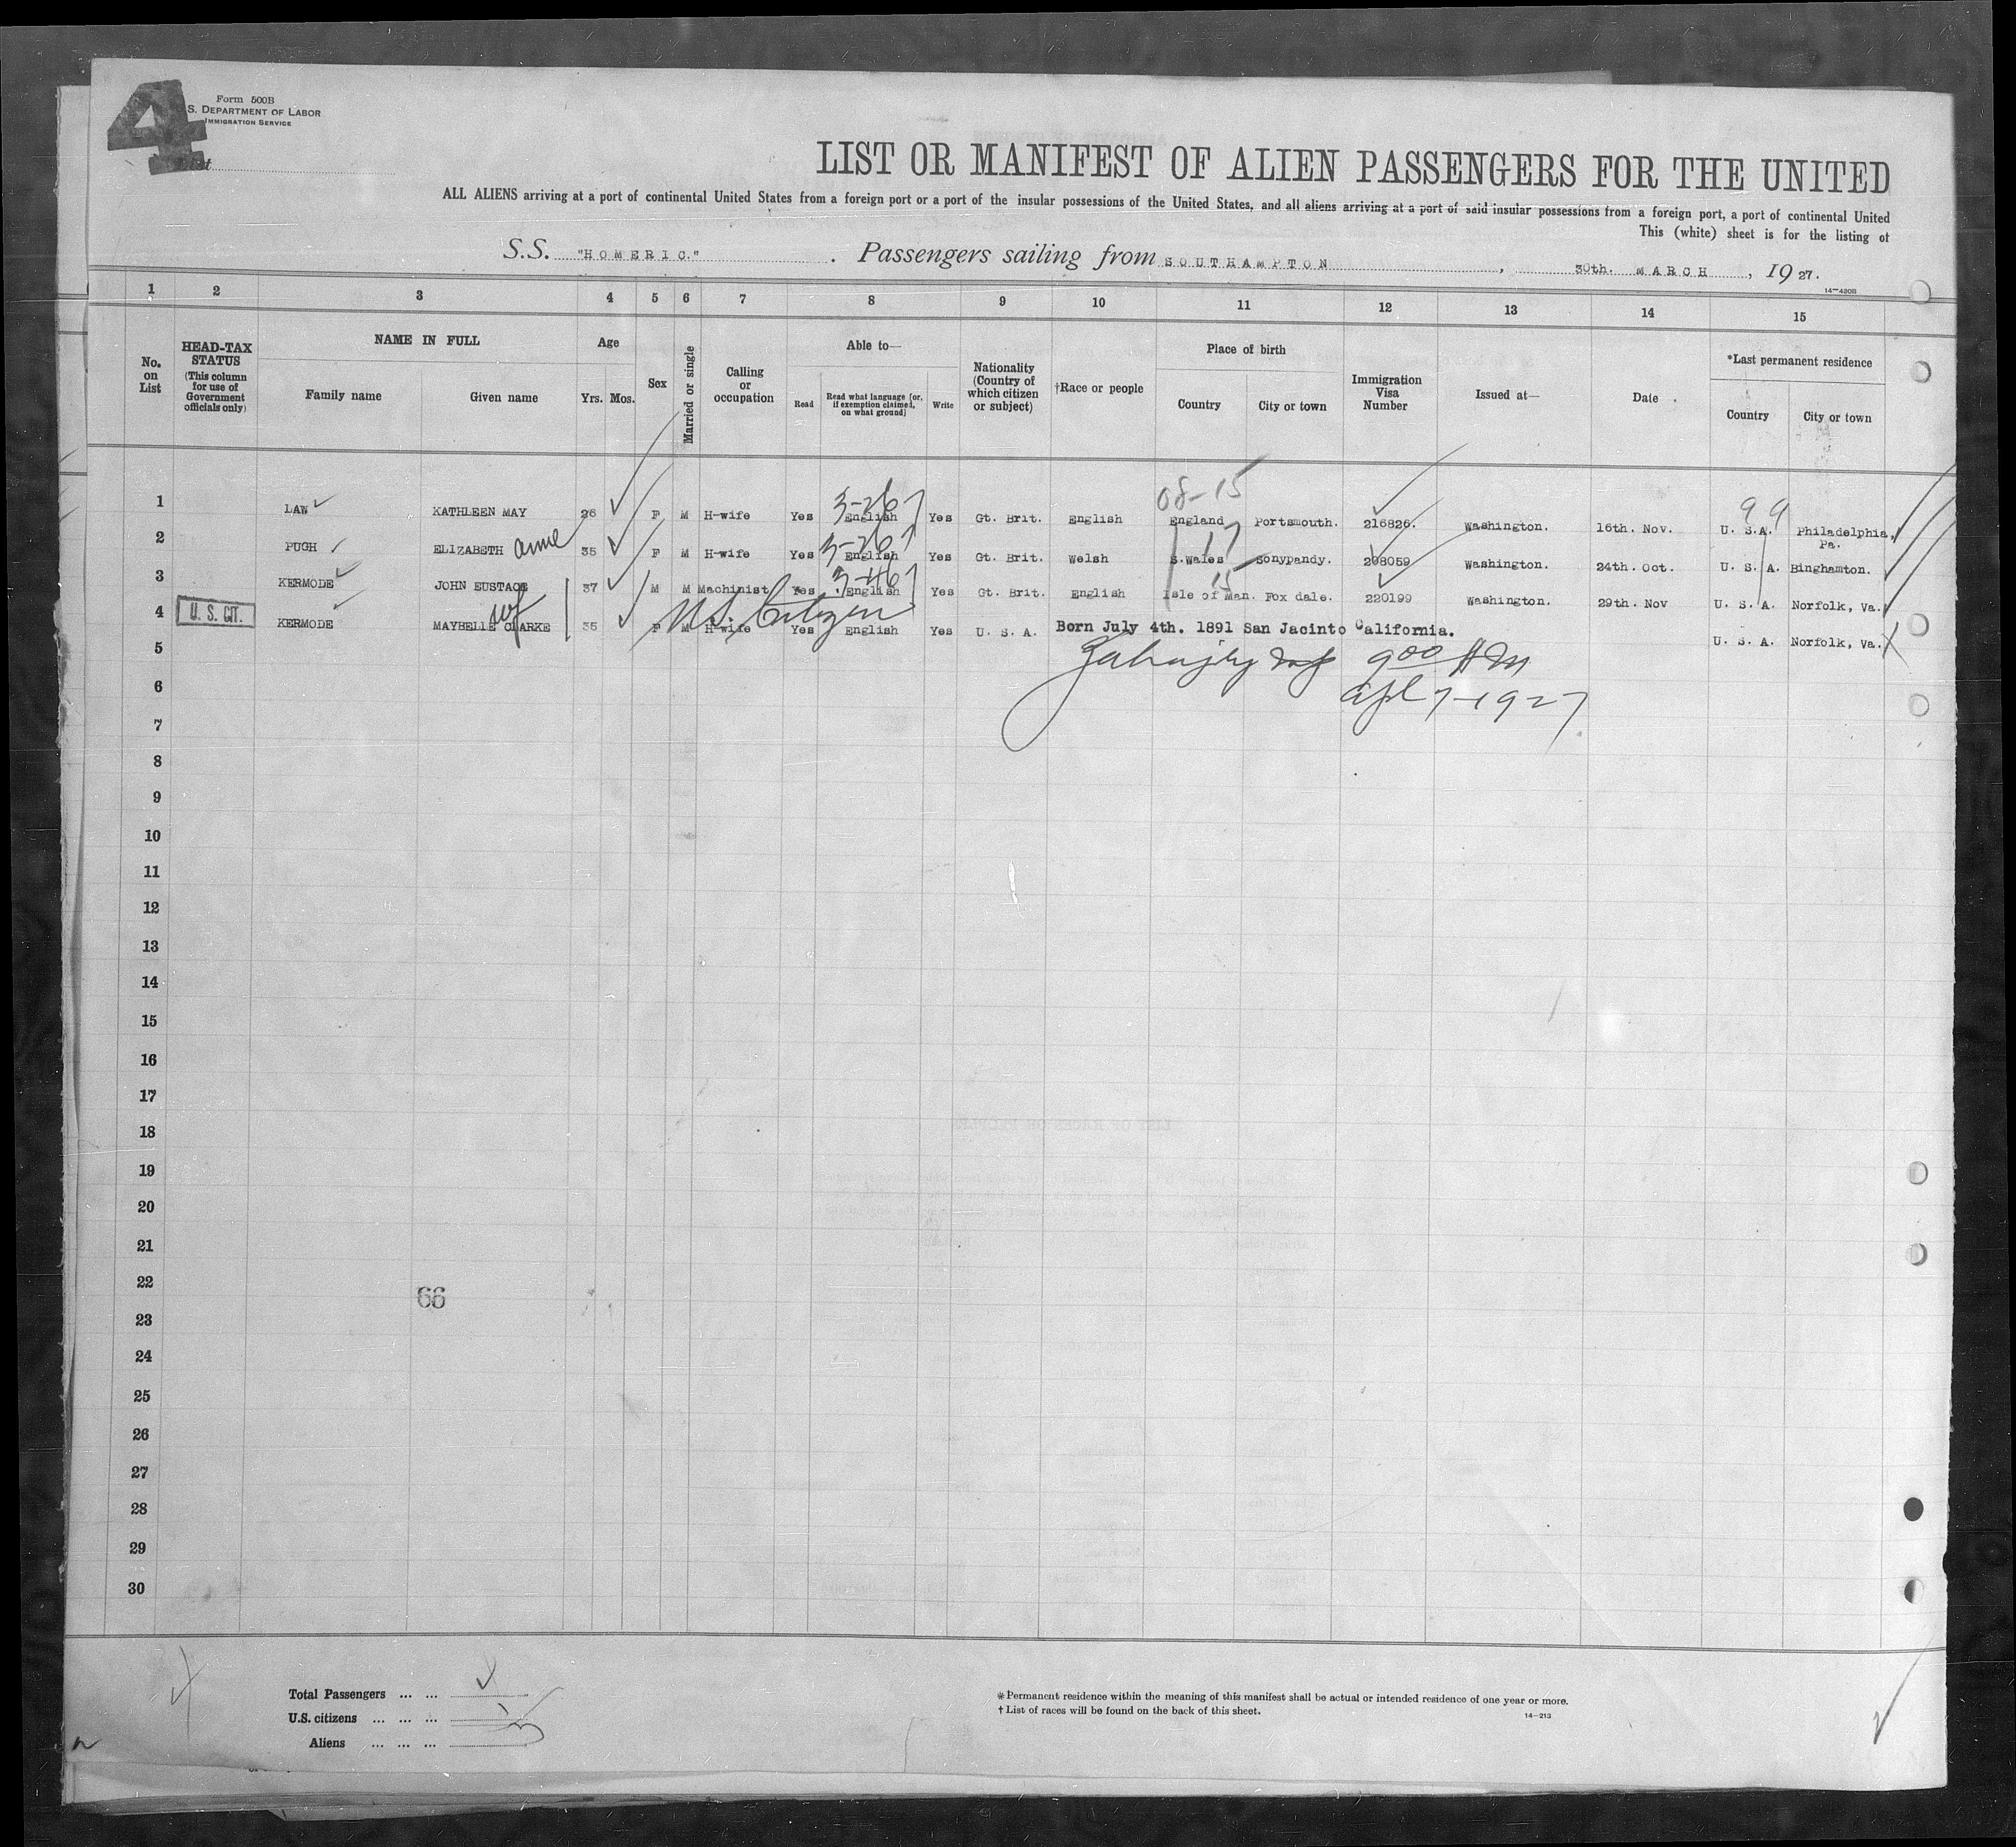 4
Form 500B
S. DEPARTMENT OF LABOR
IMMIGRATION SERVICE
List
LIST OR MANIFEST OF ALIEN PASSENGERS FOR THE UNITED
ALL ALIENS arriving at a port of continental United States from a foreign port or a port of the insular possessions of the United States, and all aliens arriving at a port of said insular possessions from a foreign port, a port of continental United
This (white) sheet is for the listing of
S.S. "HOMERIC." . Passengers sailing from SOUTHAMPTON , 30th. MARCH , 1927.
14-420B
1 2 3 4 5 6 7 8 9 10 11 12 13 14 15
No. on List
HEAD-TAX STATUS (This column for use of Government officials only)
NAME IN FULL
Family name Given name
Age
Yrs. Mos.
Sex
Married or single
Calling or occupation
Able to—
Read Read what language [or, if exemption claimed, on what ground] Write
Nationality (Country of which citizen or subject)
†Race or people
Place of birth
Country City or town
Immigration Visa Number
Issued at—
Date
*Last permanent residence
Country City or town
08-15
3-26 99
1 LAW KATHLEEN MAY 26 F M H-wife Yes English Yes Gt. Brit. English England Portsmouth. 216826. Washington. 16th. Nov. U. S. A. Philadelphia, Pa.
3-26 17
2 PUGH ELIZABETH Anne 35 F M H-wife Yes English Yes Gt. Brit. Welsh S.Wales Sonypandy. 208059 Washington. 24th. Oct. U. S. A. Binghamton.
3-46 15
3 KERMODE JOHN EUSTACE 37 M M Machinist Yes English Yes Gt. Brit. English Isle of Man. Fox dale. 220199 Washington. 29th. Nov U. S. A. Norfolk, Va.
wf U.S. Citizen
4 U. S. CIT. KERMODE MAYBELLE CLARKE 35 F M H-wife Yes English Yes U. S. A. Born July 4th. 1891 San Jacinto California. U. S. A. Norfolk, Va.
5
900 AM
6
Apl 7-1927
7
8
9
10
11
12
13
14
15
16
17
18
19
20
21
22
66
23
24
25
26
27
28
29
30
Total Passengers ... ...
U.S. citizens ... ... ... 1
Aliens ... ... ... 3
*Permanent residence within the meaning of this manifest shall be actual or intended residence of one year or more.
†List of races will be found on the back of this sheet.
14-213